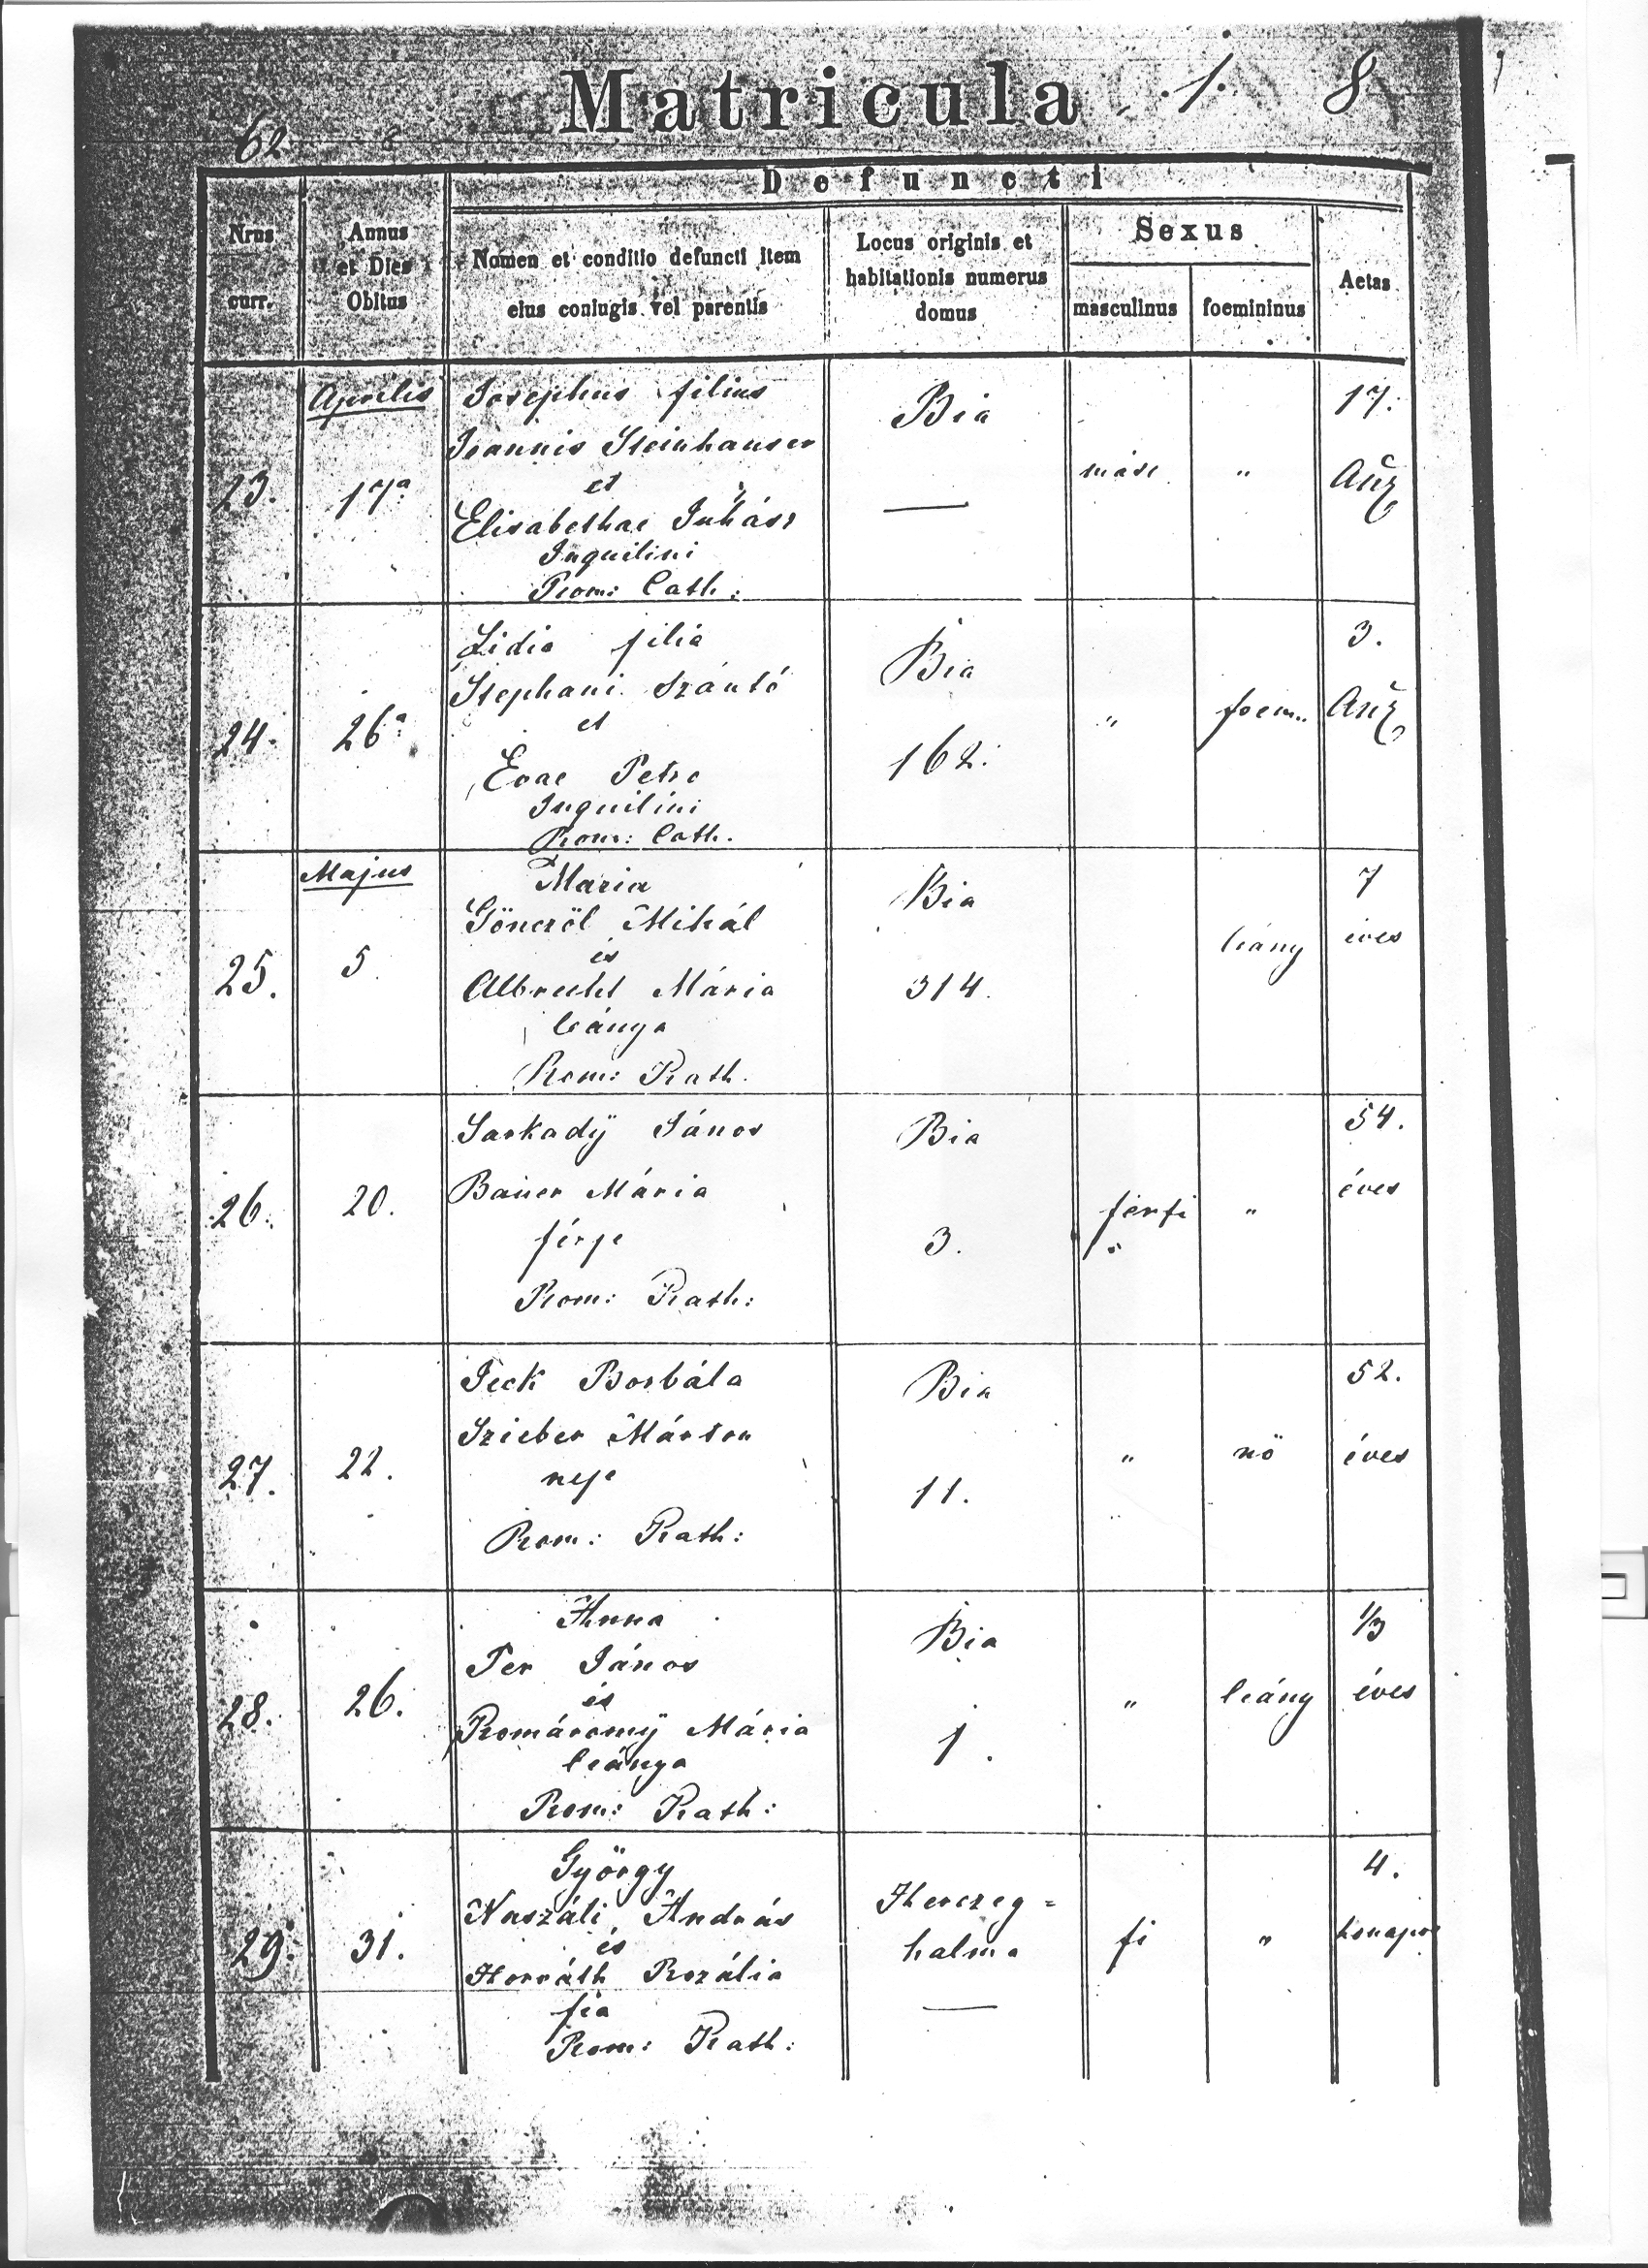 Matricula 1. 8
62
Defuncti
Nrus curr.
Annus et Dies Obitus
Nomen et conditio defuncti item eius coniugis vel parentis
Locus originis et habitationis numerus domus
Sexus
masculinus
foemininus
Aetas
Aprilis
23.
17ª
Josephus filius
Joannis Steinhauser
et
Elisabethae Juhász
Inquilini
Rom: Cath:
Bia
—
masc
"
17.
24.
26ª
Lidia filia
Stephani Szántó
et
Evae Petro
Inquilini
Rom: Cath.
Bia
162.
"
foem..
3.
Majus
25.
5
Maria
Gönczöl Mihál
és
Albrecht Mária
leánya
Rom: Kath.
Bia
314.
leány
7
éves
26.
20.
Sarkadÿ János
Bauer Mária
férje
Rom: Kath:
Bia
3.
férfi
"
54.
éves
27.
22.
Jeck Borbála
Szieber Márton
neje
Rom: Kath:
Bia
11.
"
nö
52.
éves
28.
26.
Anna
Per János
és
Komáromÿ Mária
leánya
Rom: Kath:
Bia
1.
"
leány
1/3
éves
29.
31.
György
Naszáli András
és
Horváth Rozália
fia
Rom: Kath:
Herczeg=
halma
—
fi
"
4.
honapos